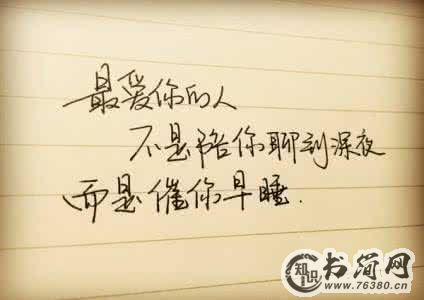 最爱你的人
不是陪你聊到深夜
而是催你早睡.
知识
书简网
www.76380.cn